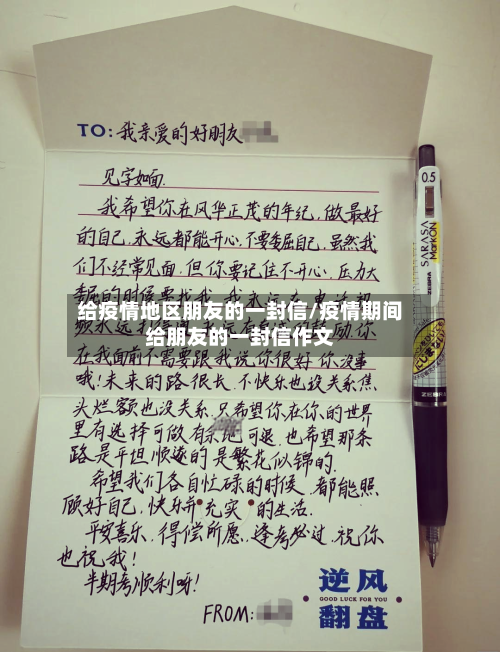 TO: 我亲爱的好朋友
见字如面.
我希望你在风华正茂的年纪,做最好
的自己.永远都能开心.不要委屈自己.虽然我
们不经常见面.但你要记住不开心.压力大
给疫情地区朋友的一封信/疫情期间
给朋友的一封信作文
在我面前不需要跟我说你很好 你没事
哦!未来的路很长.不快乐也没关系 焦
头烂额也没关系.只希望你在你的世界
里有选择可做 有余地可退.也希望那条
路是平坦顺遂的 是繁花似锦的.
希望我们各自忙碌的时候.都能照
顾好自己.快乐并充实的生活.
平安喜乐.得偿所愿.逢考必过.祝你
也祝我!
半期考顺利呀!
FROM:
逆风
GOOD LUCK FOR YOU
翻盘
0.5
SARASA
MARKON
ZEBRA
ZEBRA